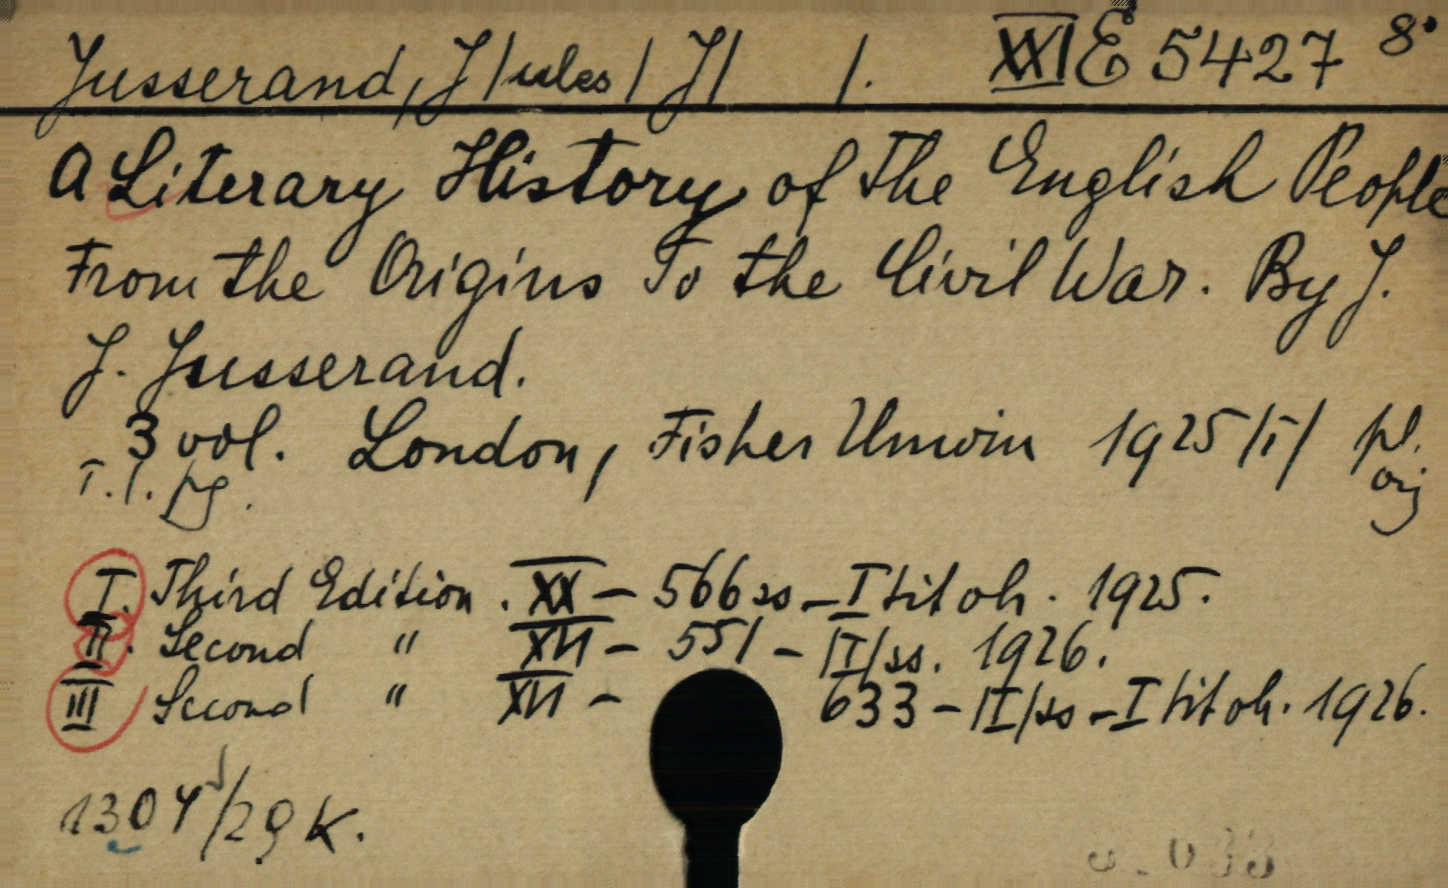 Jusserand, J/ules/ J/ 1. XXI E 5427 8°
A Literary History of the English People
From the Origins To the Civil War. By J.
J. Jusserand.
3 vol. London, Fisher Unwin 1925/I/ pl.
T. 1. pg. orj
I. Third Edition. XX - 566 ss - I tit oh. 1925.
II. Second " XVI - 551 - II/ss. 1926.
III Second " XVI - 633 - II/ss - I tit oh. 1926.
/29 K.